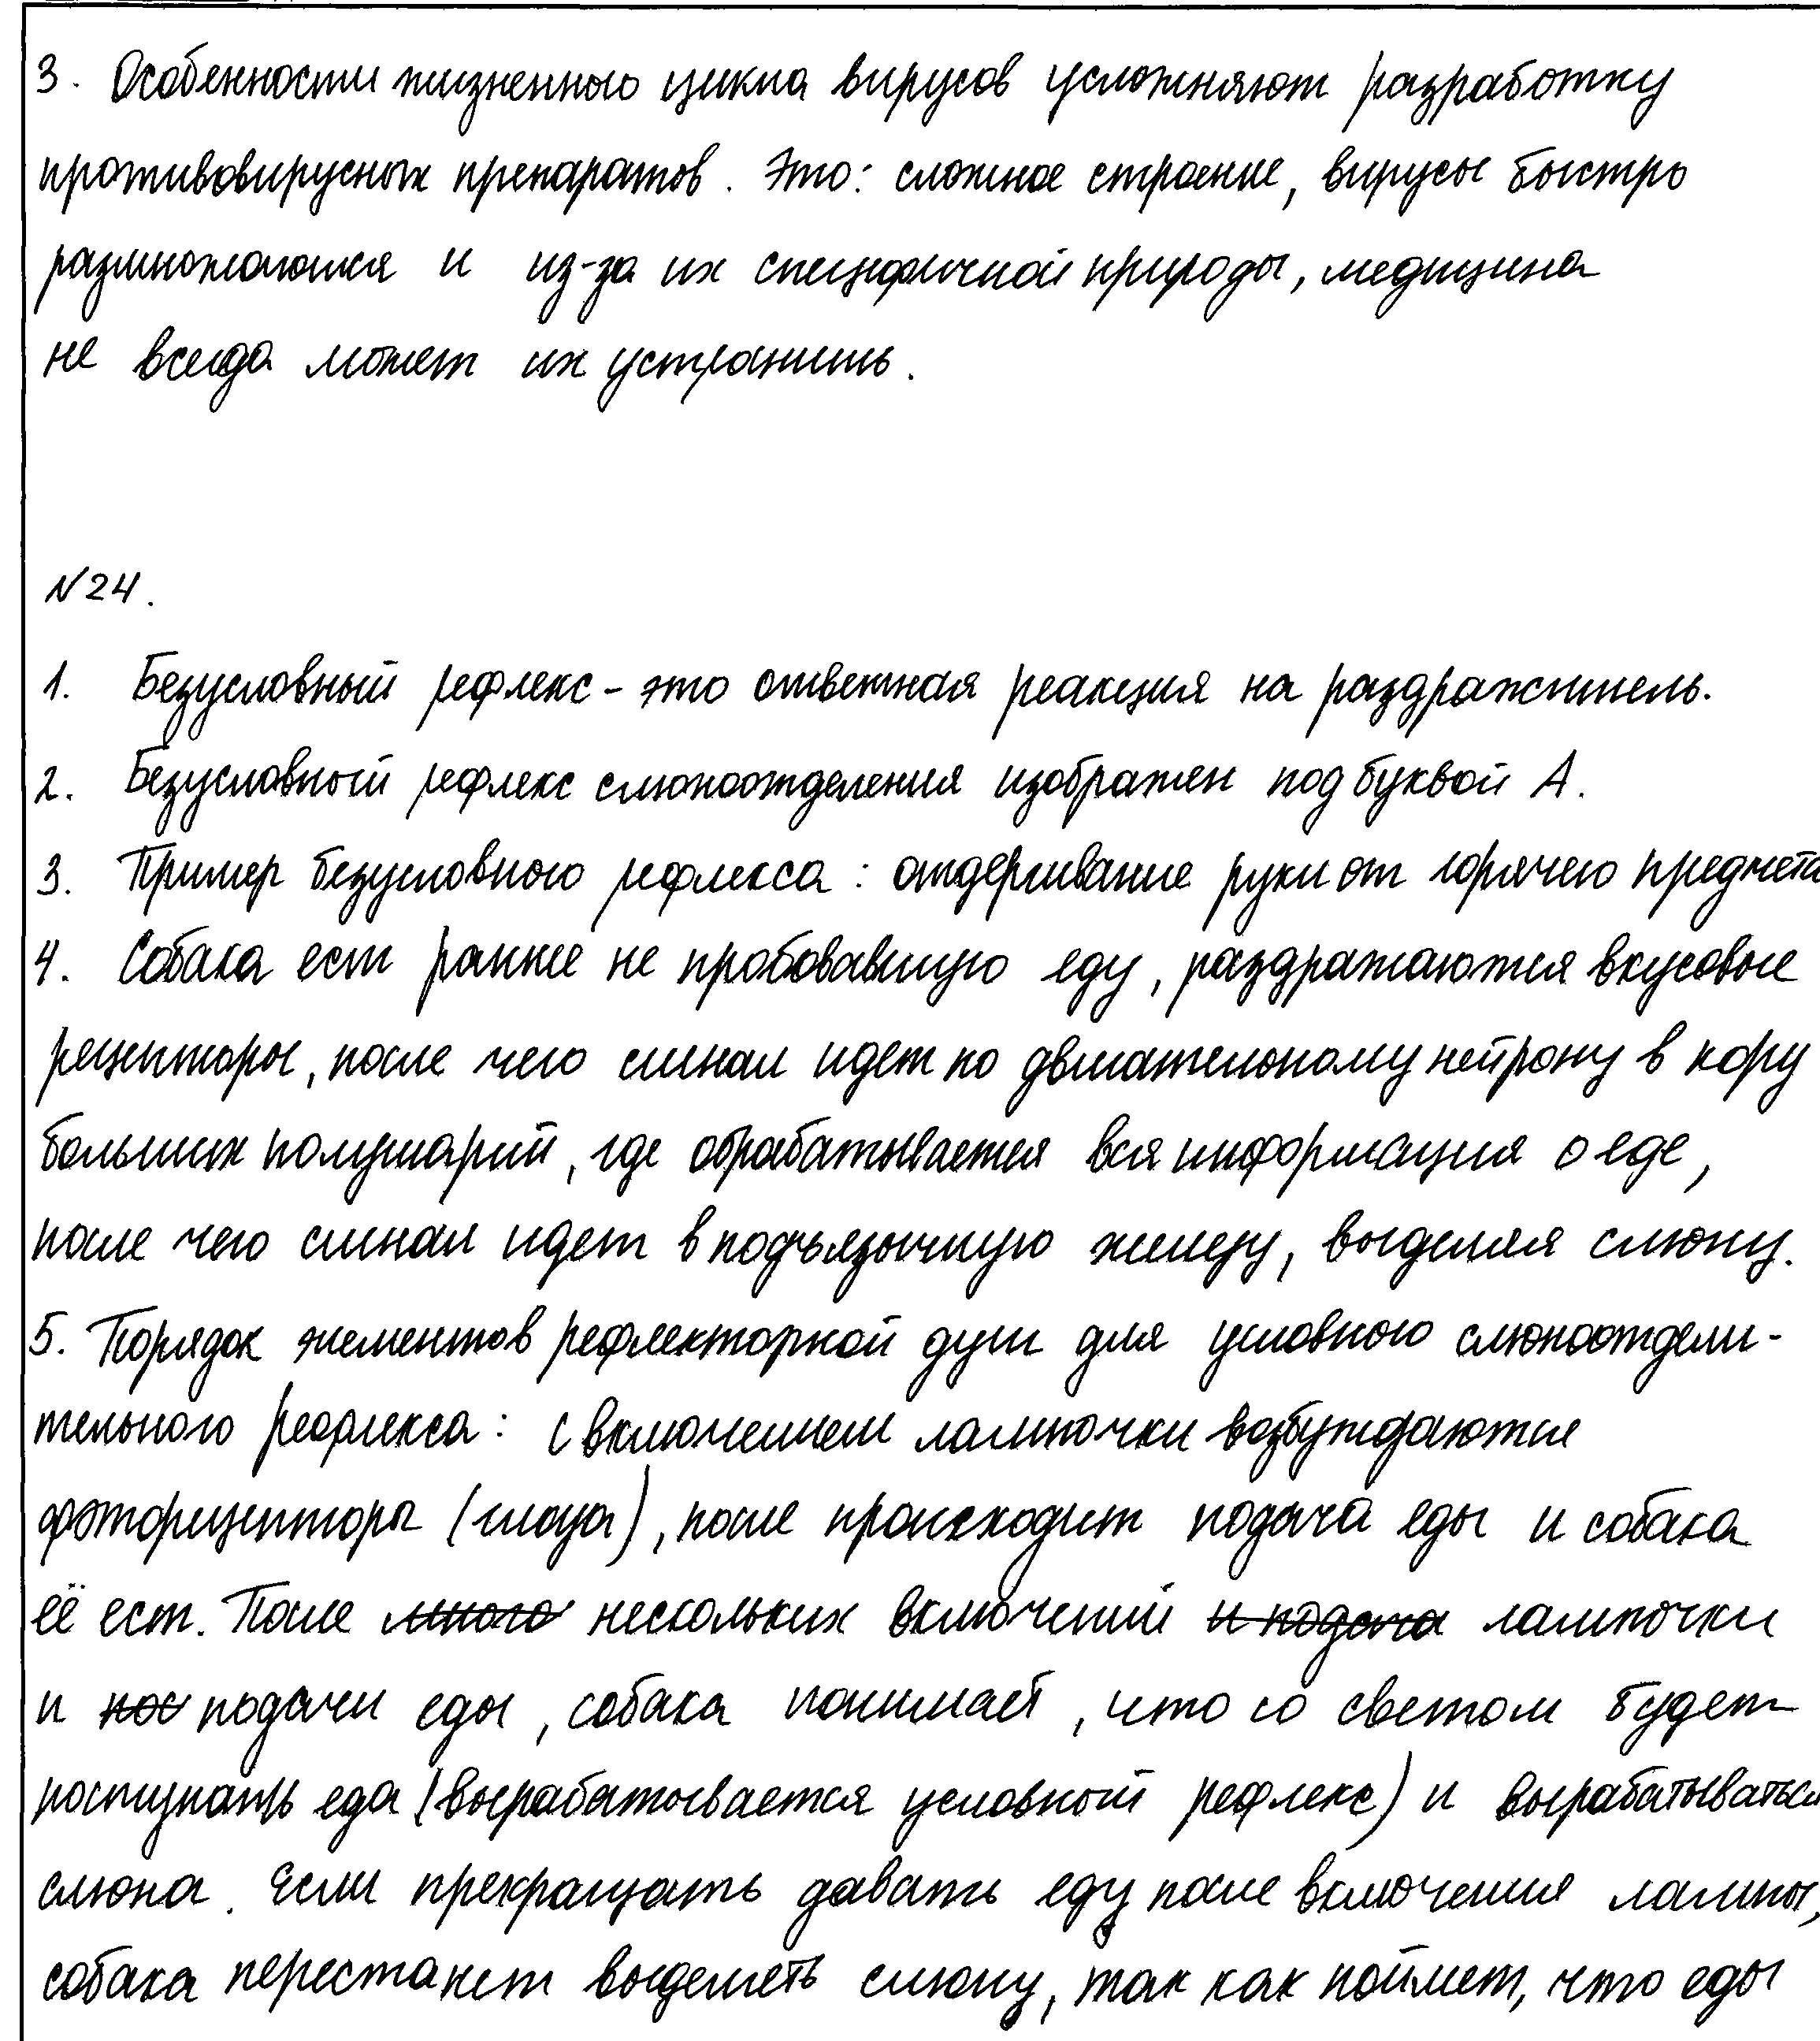 3. Особенности жизненного цикла вирусов усложняют разработку
противовирусных препаратов. Это: сложное строение, вирусы быстро
размножаются и из-за их специфичной природы, медицина
не всегда может их устранить.
№24.
1. Безусловный рефлекс - это ответная реакция на раздражитель.
2. Безусловный рефлекс слюноотделения изображен под буквой А.
3. Пример безусловного рефлекса: отдергивание руки от горячего предмета
4. Собака ест раннее не пробовавшую еду, раздражаются вкусовые
рецепторы, после чего сигнал идет по двигательному нейрону в кору
больших полушарий, где обрабатывается вся информация о еде,
после чего сигнал идет в подъязычную железу, выделяя слюну.
5. Порядок элементов рефлекторной дуги для условного слюноотдели-
тельного рефлекса: с включением лампочки возбуждаются
фоторецепторы (глаза), после происходит подача еды и собака
её ест. После много нескольких включений и подача лампочки
и пос подачи еды, собака понимает, что со светом будет
поступать еда (вырабатывается условный рефлекс) и вырабатываться
слюна. Если прекращать давать еду после включения лампы,
собака перестанет выделять слюну, так как поймет, что еды